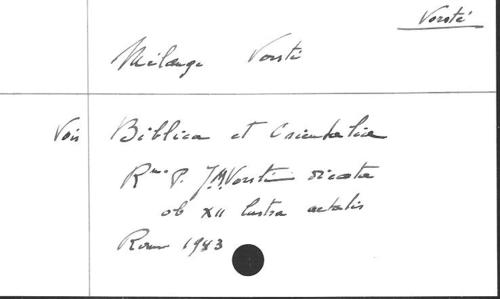 Vosté
Mélange Vosté
Voir Biblica et Orientalia
R.mo P. J.M. Vosté dicata
ob XII lustra aetatis
Rome 1943